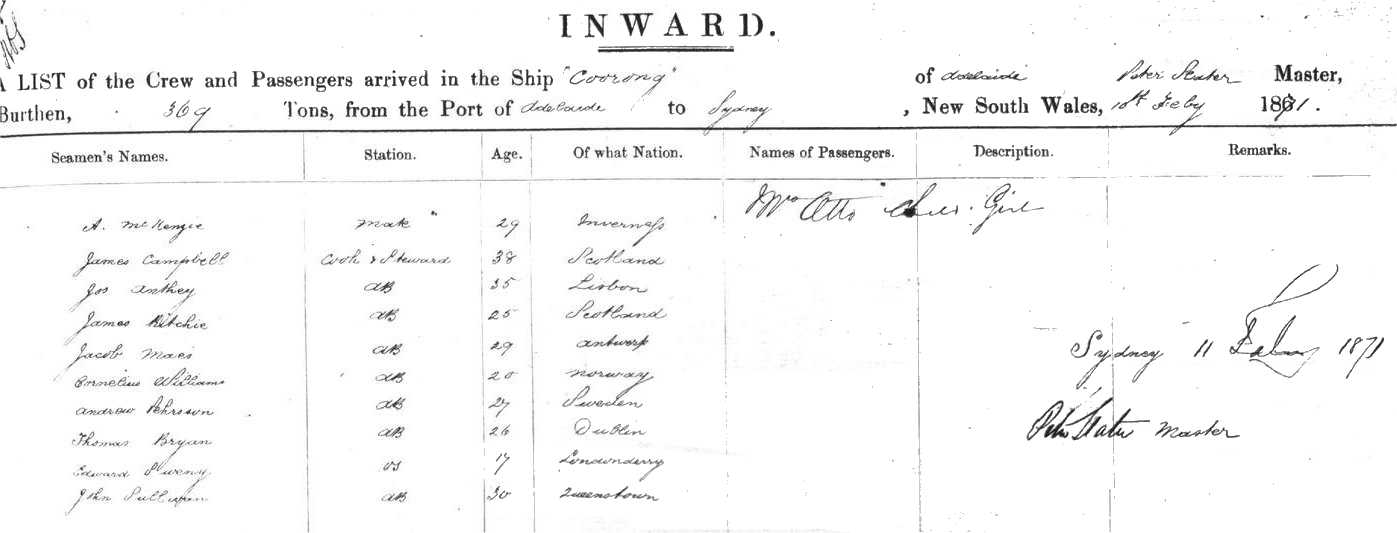 INWARD.
A LIST of the Crew and Passengers arrived in the Ship "Coorong" of Adelaide Peter Slater Master,
Burthen, 369 Tons, from the Port of Adelaide to Sydney, New South Wales, 10th Feby 1871.
Seamen's Names. Station. Age. Of what Nation. Names of Passengers. Description. Remarks.
Mrs Otto Girl
A. McKenzie Mate 29 Inverness
James Campbell Cook & Steward 38 Scotland
Jos Anthey AB 35 Lisbon
James Ritchie AB 25 Scotland
Jacob Maes AB 29 Antwerp
Sydney 11 1871
Cornelius Williams AB 20 Norway
Andrew Pehrsson AB 27 Sweden
Thomas Bryan AB 26 Dublin
Peter Slater Master
Edward Sweny OS 17 Londonderry
John Sullivan AB 30 Queenstown